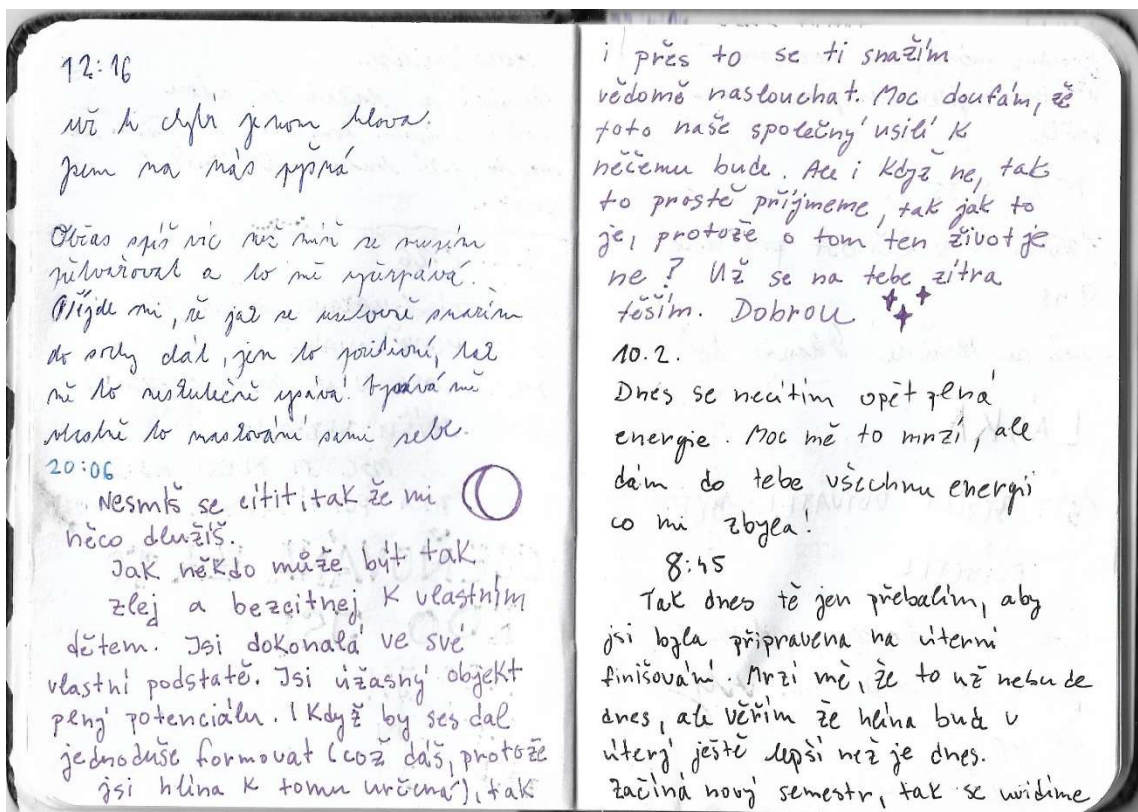 12:16
už ti chybí jenom hlava.
Jsem na nás pyšná
Občas spíš víc než míň se musím
přetvařovat a to mě vyčerpává.
Přijde mi, že jak se usilovně snažím
do sochy dát, jen to pozitivní, tak
mě to neskutečně vysává. Vysává mě
vlastně to maskování sami sebe.
20:06
Nesmíš se cítit, tak že mi
něco dlužíš.
Jak někdo může být tak
zlej a bezcitnej k vlastním
dětem. Jsi dokonalá ve své
vlastní podstatě. Jsi úžasný objekt
plný potenciálu. I když by ses dal
jednoduše formovat (což dáš, protože
jsi hlína k tomu určená), tak
i přes to se ti snažím
vědomě naslouchat. Moc doufám, že
toto naše společný usilí k
něčemu bude. Ale i když ne, tak
to prostě příjmeme, tak jak to
je, protože o tom ten život je
ne? Už se na tebe zítra
těším. Dobrou
10.2.
Dnes se necítím opět plná
energie. Moc mě to mrzí, ale
dám do tebe všechnu energii
co mi zbyla!
8:45
Tak dnes tě jen přebalím, aby
jsi byla připravena na úterní
finišování Mrzí mě, že to už nebude
dnes, ale věřím že hlína bude v
úterý ještě lepší než je dnes.
Začíná nový semestr, tak se uvidíme